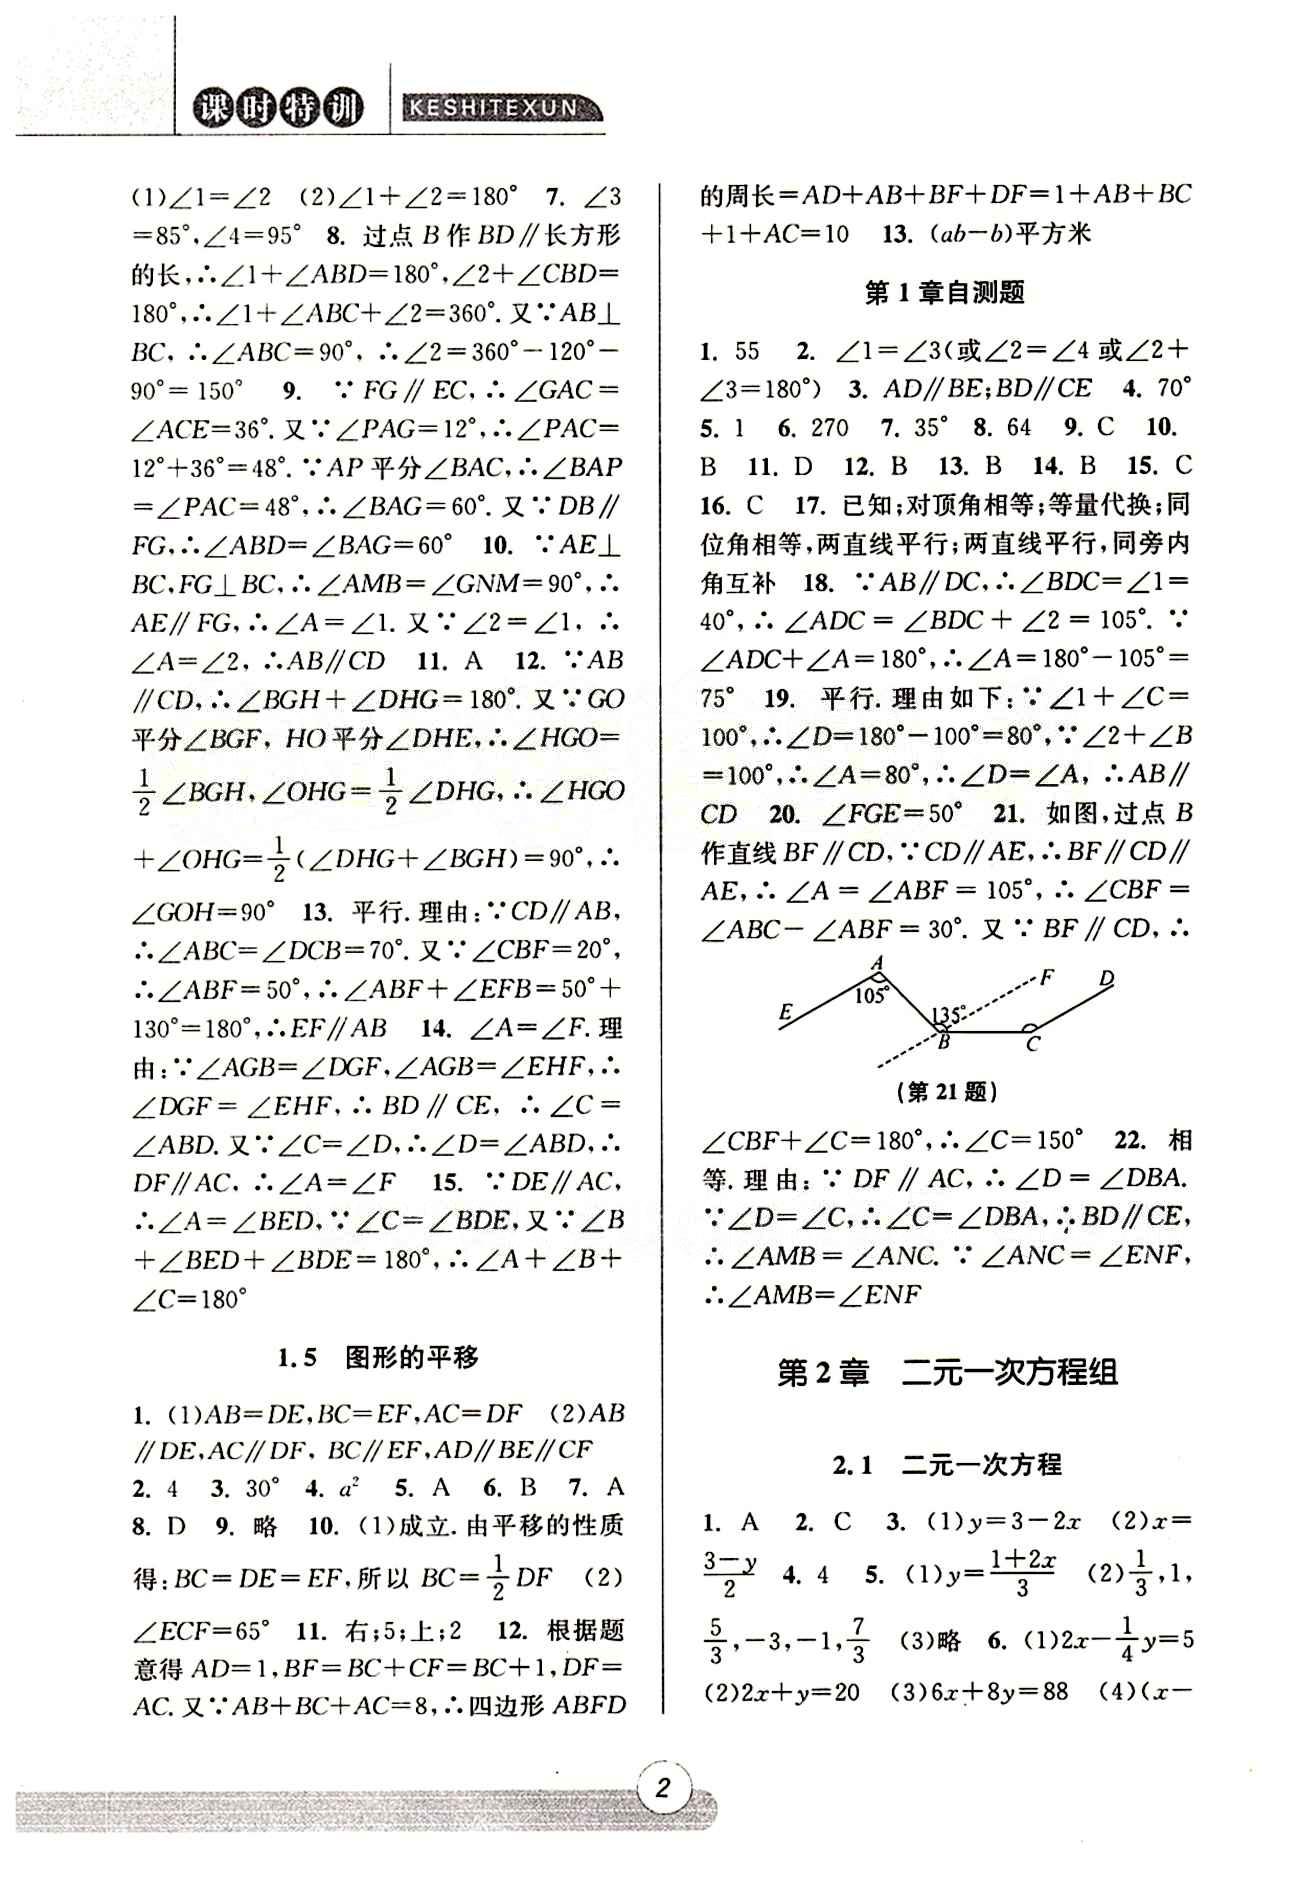 课时特训
KESHITEXUN
(1)∠1=∠2 (2)∠1+∠2=180° 7. ∠3
=85°,∠4=95° 8. 过点 B 作 BD∥长方形
的长,∴∠1+∠ABD=180°,∠2+∠CBD=
180°,∴∠1+∠ABC+∠2=360°. 又∵AB⊥
BC, ∴∠ABC=90°, ∴∠2=360°-120°-
90°=150° 9. ∵FG∥EC,∴∠GAC=
∠ACE=36°. 又∵∠PAG=12°,∴∠PAC=
12°+36°=48°. ∵AP 平分∠BAC,∴∠BAP
=∠PAC=48°,∴∠BAG=60°. 又∵DB∥
FG,∴∠ABD=∠BAG=60° 10. ∵AE⊥
BC,FG⊥BC,∴∠AMB=∠GNM=90°,∴
AE∥FG,∴∠A=∠1. 又∵∠2=∠1, ∴
∠A=∠2, ∴AB∥CD 11. A 12. ∵AB
∥CD,∴∠BGH+∠DHG=180°. 又∵GO
平分∠BGF, HO平分∠DHE,∴∠HGO=
1/2∠BGH,∠OHG=1/2∠DHG,∴∠HGO
+∠OHG=1/2(∠DHG+∠BGH)=90°,∴
∠GOH=90° 13. 平行. 理由:∵CD∥AB,
∴∠ABC=∠DCB=70°. 又∵∠CBF=20°,
∴∠ABF=50°,∴∠ABF+∠EFB=50°+
130°=180°,∴EF∥AB 14. ∠A=∠F. 理
由:∵∠AGB=∠DGF,∠AGB=∠EHF,∴
∠DGF=∠EHF,∴BD∥CE, ∴∠C=
∠ABD. 又∵∠C=∠D,∴∠D=∠ABD,∴
DF∥AC, ∴∠A=∠F 15. ∵DE∥AC,
∴∠A=∠BED,∵∠C=∠BDE,又∵∠B
+∠BED+∠BDE=180°,∴∠A+∠B+
∠C=180°
1.5 图形的平移
1. (1)AB=DE,BC=EF,AC=DF (2)AB
∥DE,AC∥DF, BC∥EF,AD∥BE∥CF
2. 4 3. 30° 4. a² 5. A 6. B 7. A
8. D 9. 略 10. (1)成立. 由平移的性质
得:BC=DE=EF,所以 BC=1/2DF (2)
∠ECF=65° 11. 右;5;上;2 12. 根据题
意得 AD=1,BF=BC+CF=BC+1,DF=
AC. 又∵AB+BC+AC=8,∴四边形 ABFD
的周长=AD+AB+BF+DF=1+AB+BC
+1+AC=10 13. (ab-b)平方米
第 1 章自测题
1. 55 2. ∠1=∠3(或∠2=∠4 或∠2+
∠3=180°) 3. AD∥BE;BD∥CE 4. 70°
5. 1 6. 270 7. 35° 8. 64 9. C 10.
B 11. D 12. B 13. B 14. B 15. C
16. C 17. 已知;对顶角相等;等量代换;同
位角相等,两直线平行;两直线平行,同旁内
角互补 18. ∵AB∥DC,∴∠BDC=∠1=
40°,∴∠ADC=∠BDC+∠2=105°. ∵
∠ADC+∠A=180°,∴∠A=180°-105°=
75° 19. 平行. 理由如下:∵∠1+∠C=
100°,∴∠D=180°-100°=80°,∵∠2+∠B
=100°,∴∠A=80°,∴∠D=∠A, ∴AB∥
CD 20. ∠FGE=50° 21. 如图,过点 B
作直线 BF∥CD,∵CD∥AE,∴BF∥CD∥
AE,∴∠A=∠ABF=105°,∴∠CBF=
∠ABC-∠ABF=30°. 又∵BF∥CD,∴
A
105°
E
135°
F
D
B
C
(第 21 题)
∠CBF+∠C=180°,∴∠C=150° 22. 相
等. 理由:∵DF∥AC,∴∠D=∠DBA.
∵∠D=∠C,∴∠C=∠DBA,∴BD∥CE,
∴∠AMB=∠ANC. ∵∠ANC=∠ENF,
∴∠AMB=∠ENF
第 2 章 二元一次方程组
2.1 二元一次方程
1. A 2. C 3. (1)y=3-2x (2)x=
(3-y)/2 4. 4 5. (1)y=(1+2x)/3 (2)1/3,1,
5/3,-3,-1,7/3 (3)略 6. (1)2x-1/4y=5
(2)2x+y=20 (3)6x+8y=88 (4)(x-
2